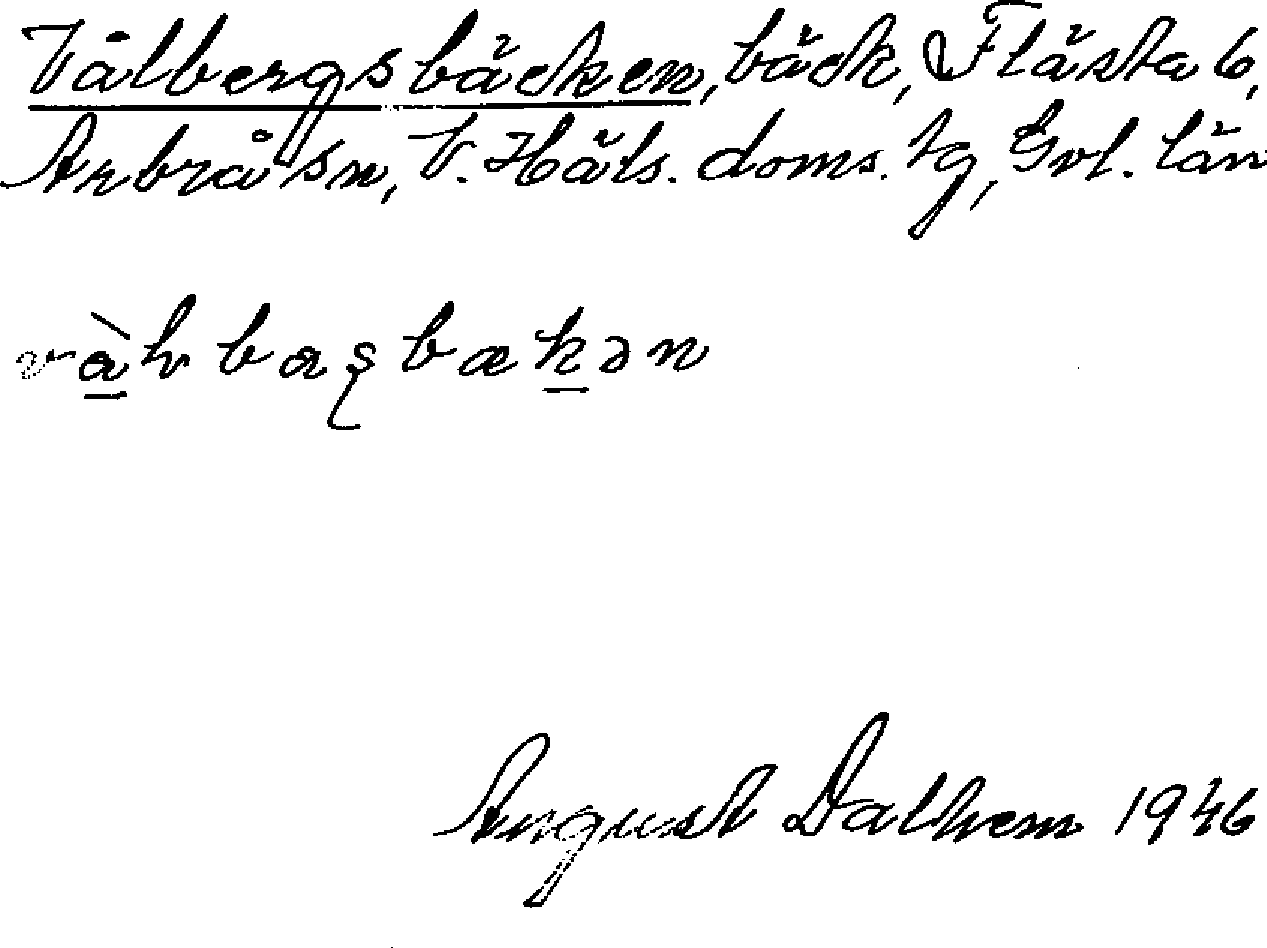 Vålbergsbäcken, bäck, Flästa 6,
Arbrå sn, V. Häls. doms. tg, Gvl. län
August Dalhem 1946